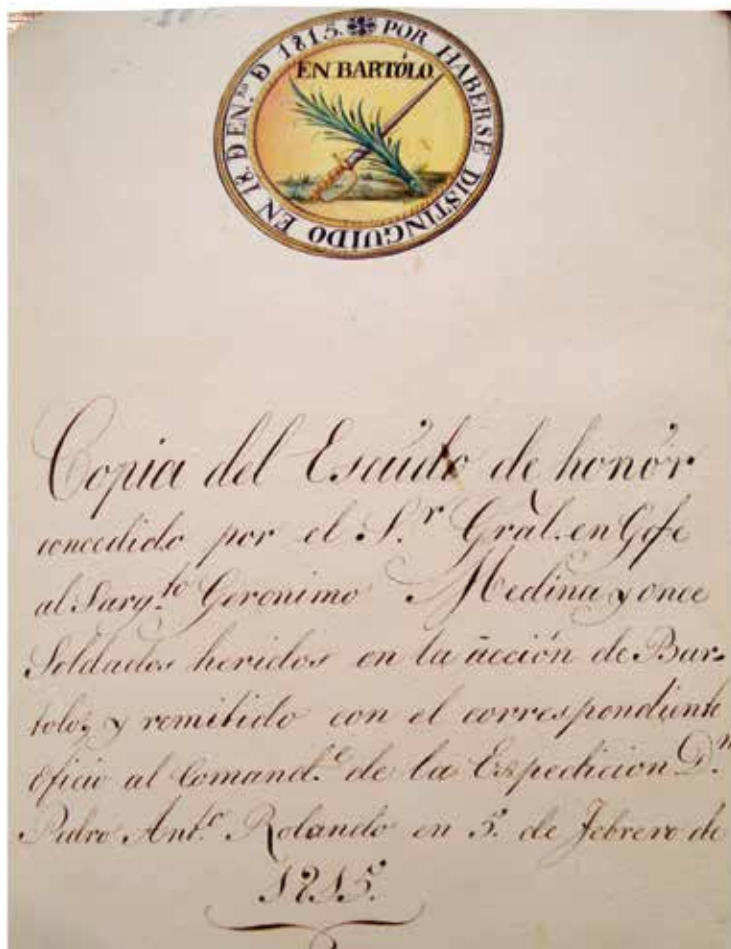 POR HABERSE DISTINGUIDO EN 18. D EN.ro D 1815.
EN BARTÓLO
Copia del Escúdo de honór
concedido por el S.r Grãl. en Gefe
al Sarg.to Geronimo Medina y once
Soldados heridos en la acción de Bar-
tolo, y remitido con el correspondiente
Oficio al Comand.e de la Expedicion D.n
Pedro Ant.o Rolando en 5. de Febrero de
1815.